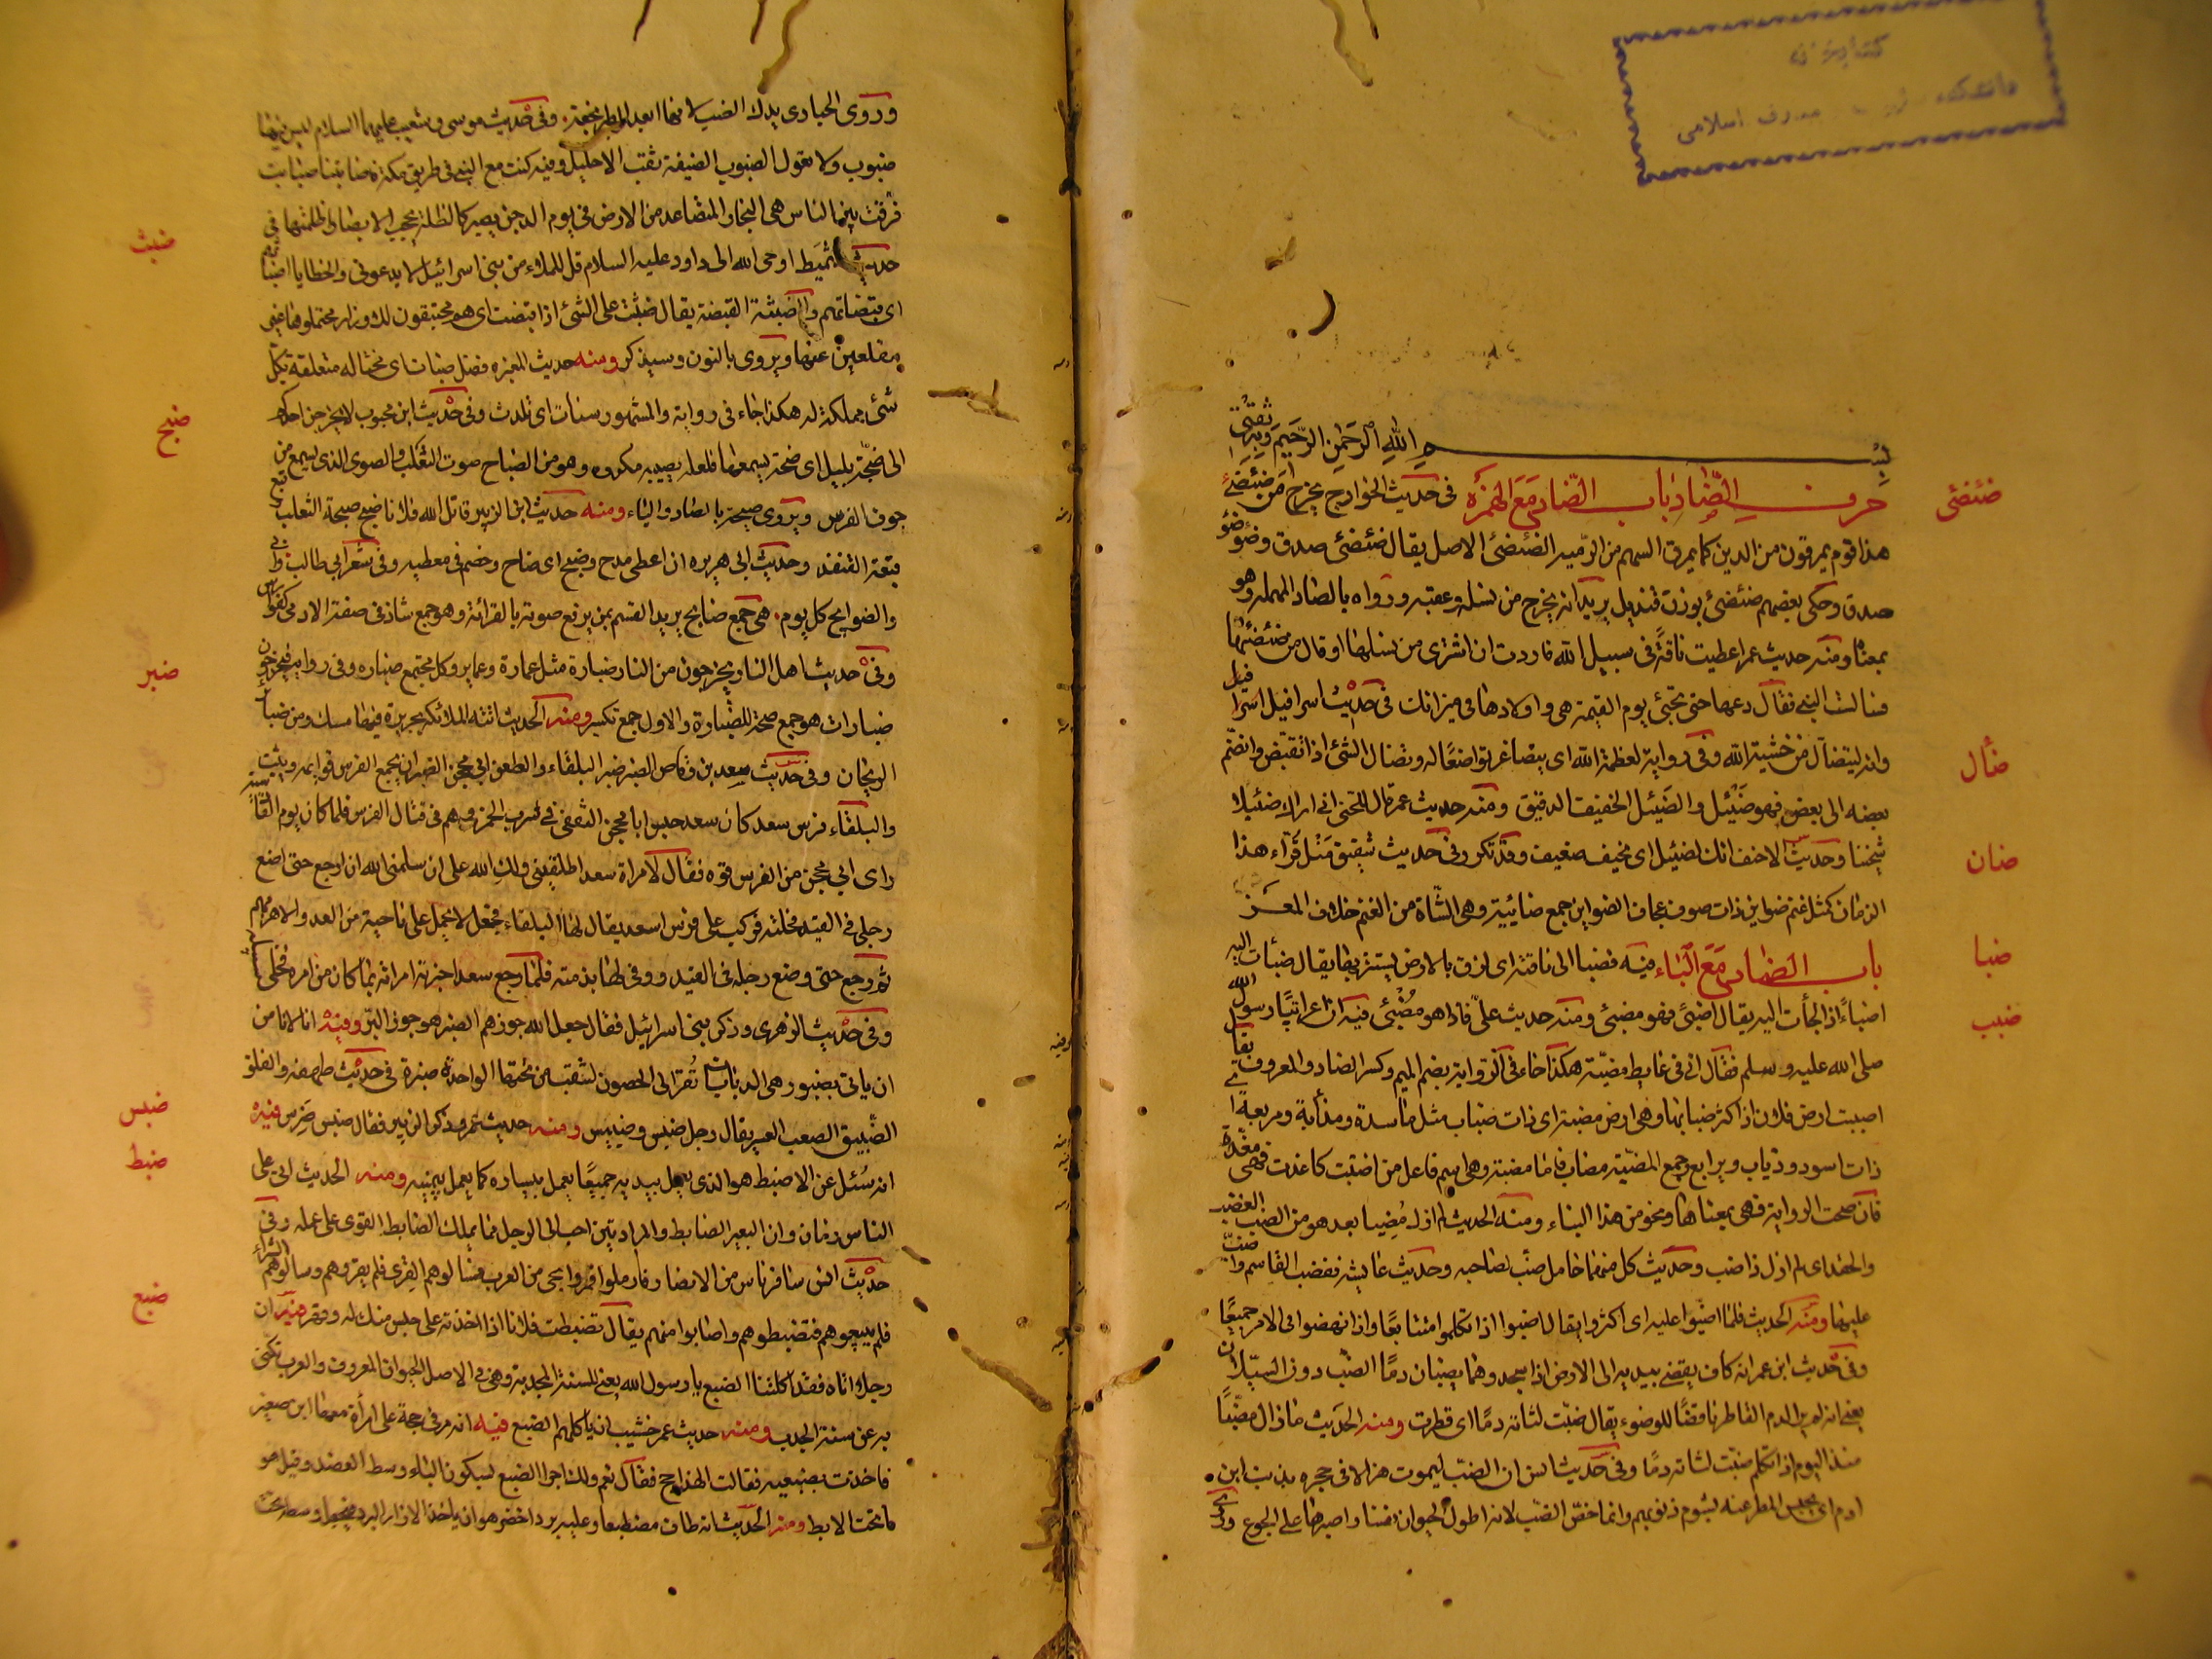 بسم الله الرحمن الرحيم وبه ثقتي
حرف الضاد باب الضاد مع الهمزة في حديث الخوارج يخرج من ضئضئ
هذا قوم يمرقون من الدين كما يمرق السهم من الرمية الضئضئ الاصل يقال ضئضئ صدق وضؤضؤ
صدق وحكى بعضهم ضئضئ بوزن قنديل يريد انه يخرج من نسله وعقبه ورواه بالصاد المهمله وهو
بمعناه ومنه حديث عمر اعطيت ناقة في سبيل الله فاردت ان اشترى من نسلها او قال من ضئضئها
فسالت النبي فقال دعها حتى تجئ يوم القيمة هي واولادها في ميزانك في حديث اسرافيل
وانه ليتضال من خشية الله وفي رواية لعظمة الله اى يتصاغر تواضعا له وتضال الشئ اذا تقبض وانضم
بعضه الى بعض فهو ضئيل والضئيل الخفيف الدقيق ومنه حديث عمر قال للجني انى اراك ضئيلا
شخيتا وحديث الاحنف انك لضئيل اى نحيف ضعيف وقد تكرر وفي حديث شقيق مثل قراء هذا
الزمان كمثل غنم ضواين ذات صوف عجاف الضواين جمع ضاينة وهى الشاة من الغنم خلاف المعز
باب الضاد مع الباء فيه فضبا الى ناقته اى لزق بالارض يستتر بها يقال ضبات اليه
اضبا اذا لجأت اليه يقال اضبئ فهو مضبئ ومنه حديث على فاذا هو مضبئ فيه ان اعرابيا رسول الله
صلى الله عليه وسلم فقال انى في غايط مضبة هكذا جاء في الرواية بضم الميم وكسر الضاد والمعروف
اضببت ارض فلان اذا كثر ضبابها وهى ارض مضبة اى ذات ضباب مثل ماسدة ومذأبة ومربعة
ذات اسود وذياب ويرابع وجمع المضبة مضاب فاما مضبة وهى اسم فاعل من اضبت كاغدت فهى مغدة
فان صحت الرواية فهى بمعناها ونحو من هذا البناء ومنه الحديث لم ازل مضبا بعد هو من الضب الغضب
والحقد اى لم ازل ذا ضب وحديث كل منهما حامل ضب لصاحبه وحديث عايشه فغضب القاسم واضب
عليها ومنه الحديث فلما اضبوا عليه اى اكثروا يقال اضبوا اذا تكلموا متتابعا واذا نهضوا الى الامر جميعا
وفي حديث ابن عمر انه كان يفضى بيديه الى الارض اذا سجد وهما يضبان دما الضب دون السيلان
يعنى انه لم ير الدم القاطر ناقضا للوضوء يقال ضبت لثاته دما اى قطرت ومنه الحديث مازال مضبا
منذ اليوم اذا تكلم ضبت لثاته دما وفي حديث انس ان الضب ليموت هزالا في حجره بذنب ابن
ادم اى يحبس المطر عنه بشوم ذنوبهم وانما خص الضب لانه اطول الحيوان نفسا واصبرها على الجوع
ضئضئ
ضأل
ضان
ضبا
ضبب
وروى الحبارى بدل الضب لانها ابعد الطير نجعة وفي حديث موسى وشعيب عليهما السلام ليس فيها
ضبوب ولا ثعول الضبوب الضيقة ثقب الاحليل وفيه كنت مع النبي في طريق مكة فاصابتنا ضبابة
فرقت بين الناس هى البخار المتصاعد من الارض في يوم الدجن يصير كالظلة يحجب الابصار لظلمتها في
حديث شميط اوحى الله الى داود عليه السلام قل للملاء من بنى اسرائيل لا يدعونى والخطايا
اى قبضاتهم والضبثة القبضة يقال ضبثت على الشئ اذا قبضت اى هم محتقبون للاوزار محتملوها غير
مقلعين عنها ويروى بالنون وسيذكر ومنه حديث المغيره فضل ضباث اى مختاله متعلقة بكل
شئ ممسكة له هكذا جاء في رواية والمشهور
الى ضبحة بليل اى صيحة يسمعها فلعله يصيبه مكروه وهو من الضباح صوت الثعلب والصوت الذى يسمع من
جوف الفرس ويروى صيحة بالصاد والياء ومنه حديث ابن الزبير قاتل الله فلانا ضبح ضبحة الثعلب
قبعة القنفذ وحديث ابى هريره ان اعطى مدح وضبح اى صاح وخصم في معطيه وفي شعر ابى طالب
والضوابح كل يوم هى جمع ضابح يريد القسم بمن يرفع صوته بالقرائة وهو جمع شاذ في صفة الادمى كفوارس
وفي حديث اهل النار يخرجون من النار ضبارة مثل عمارة وعماير وكل مجتمع ضباره وفي رواية فيخرجون
ضبارات هو جمع صحة للضبارة والاول جمع تكسير ومنه الحديث اتته الملائكة بحريرة فيها مسك ومن ضباير
الريحان وفي حديث سعد بن وقاص الضبر ضبر البلقاء والطعن ابى محجن الضبر ان يجمع الفرس قوايمه ويثب
والبلقاء فرس سعد كان سعد حبس ابا محجن الثقفى في شرب الخمر وهم في قتال الفرس فلما كان يوم القادسية
راى ابى محجن من الفرس قوه فقال لامراة سعد اطلقينى ولك الله على ان سلمنى الله ان ارجع حتى اضع
رجلى في القيد فحلته فركب على فرس لسعد يقال لها البلقاء فجعل لا يحمل على ناحية من العدو الا هزمهم
ثم رجع حتى وضع رجله في القيد ووفى لها بذمته فلما رجع سعد اخبرته امراته بما كان من امره فخلى سبيله
وفي حديث الزهرى وذكر بنى اسرائيل فقال جعل الله جوزهم الضبر هو جوز البر وفيه انا لا نامن
ان ياتى بضبور هى الدبابات تقرب الى الحصون لتنقب من تحتها الواحدة ضبرة في حديث طهفه والفلو
الضبيس الصعب العسر يقال رجل ضبس وضبيس ومنه حديث عمر وذكر الزبير فقال ضبس ضرس فيه
انه سئل عن الاضبط هو الذى يعمل بيديه جميعا يعمل بيساره كما يعمل بيمينه ومنه الحديث ياتى على
الناس زمان وان البعير الضابط والمزادتين احب الى الرجل مما يملك الضابط القوى على عمله وفي
حديث انس سافر ناس من الانصار فارملوا فمروا بحى من العرب فسالوهم القرى فلم يقروهم وسالوهم الشراء
فلم يبيعوهم فتضبطوهم واصابوا منهم يقال تضبطت فلانا اذا اخذته على حبس منك له وقهر فيه ان
رجلا اتاه فقد اكلتنا الضبع يا رسول الله يعنى السنة المجدبة وهى في الاصل الحيوان المعروف والعرب تكنى
به عن سنة الجدب ومنه حديث عمر خشيت ان تاكلهم الضبع فيه انه مر في حجة على امرأة معها ابن صغير
فاخذت بضبعيه فقالت الهذا حج فقال نعم ولك اجر الضبع بسكون الباء وسط العضد وقيل هو
ما تحت الابط ومنه الحديث انه طاف مضطبعا وعليه برد اخضر هو ان ياخذ الازار او البرد فيجعل وسطه تحت
ضبث
ضبح
ضبر
ضبس
ضبط
ضبع